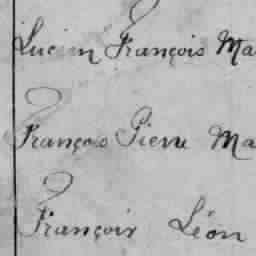 Lucien François Ma
François Pierre Ma
François Léon